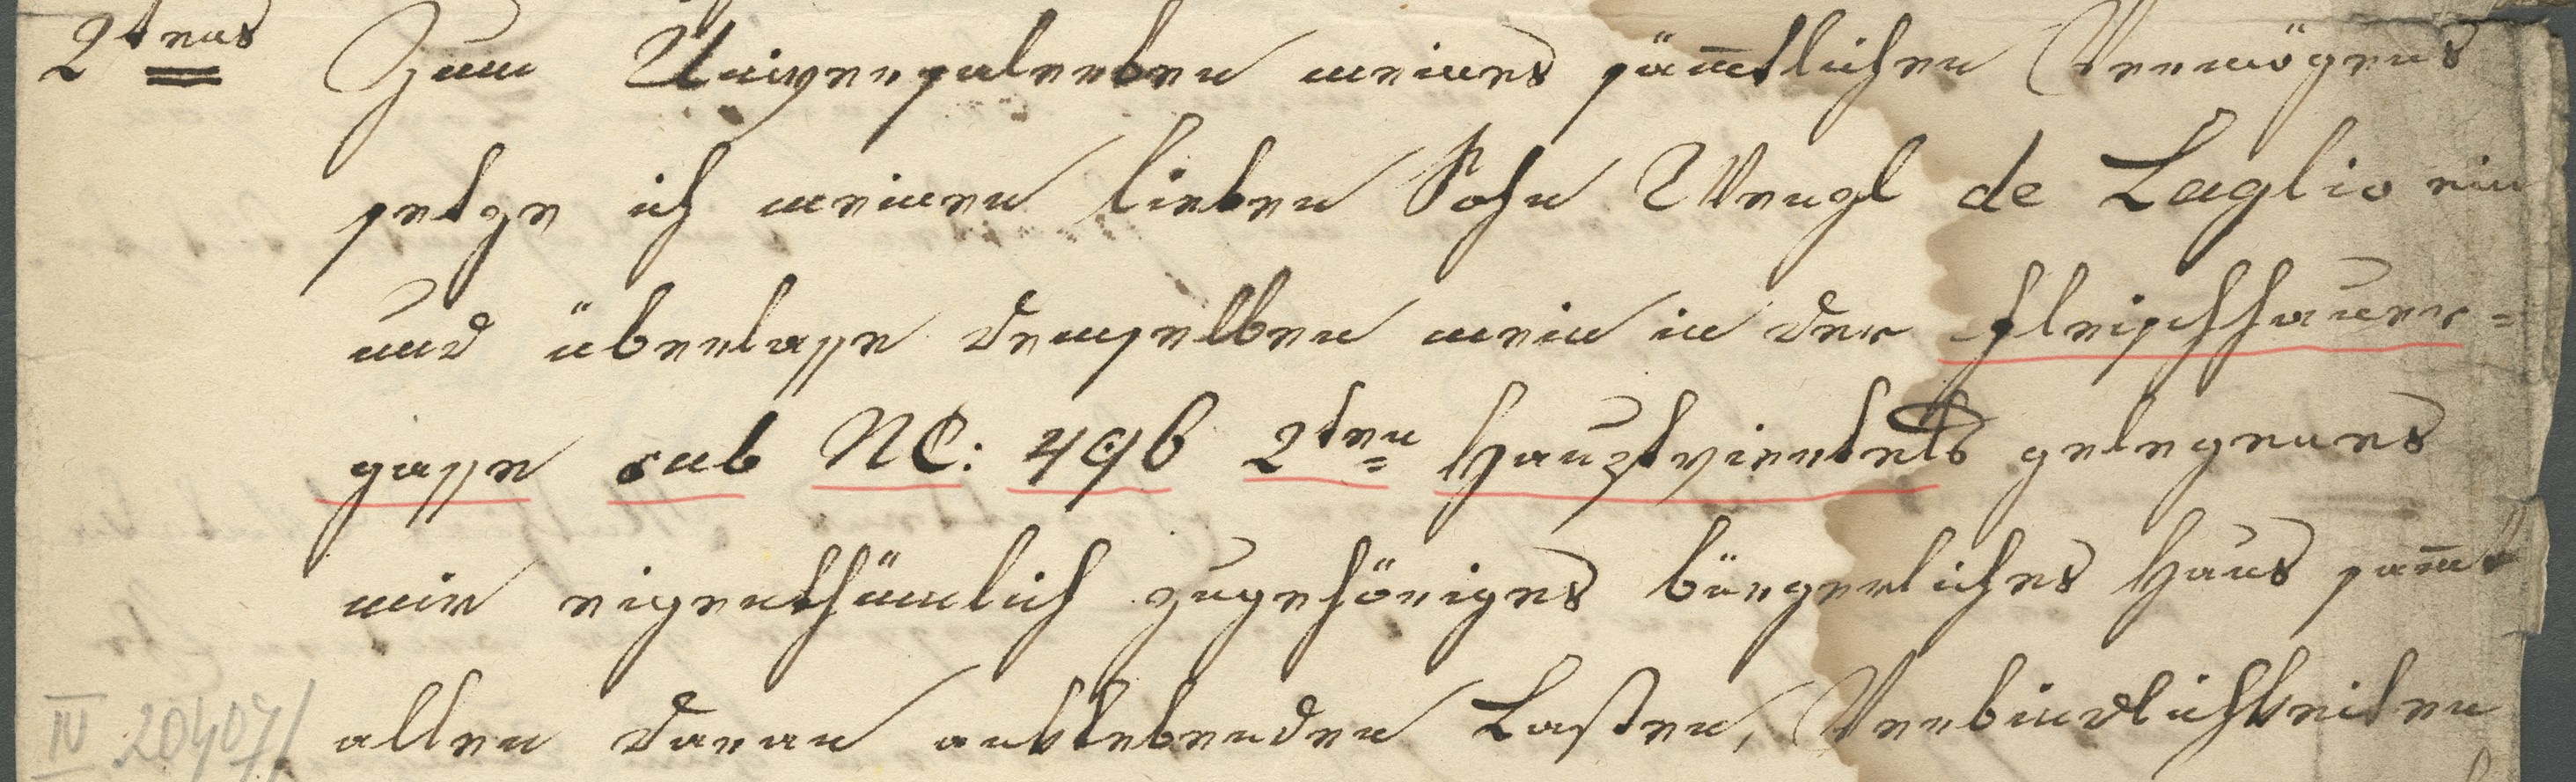 2tens Zum Universalerben meines säm̅tlichen Vermögens
setze ich meinen lieben Sohn Wenzl de Laglio ein
und überlasse demselben mein in der Fleischhauer=
gasse sub NC: 496 2ten Hauptviertels gelegenes
mir eigenthümlich zugehöriges bürgerliches Haus sam̅t
allen daran anklebenden Lasten, Verbindlichkeiten
IV 20407/